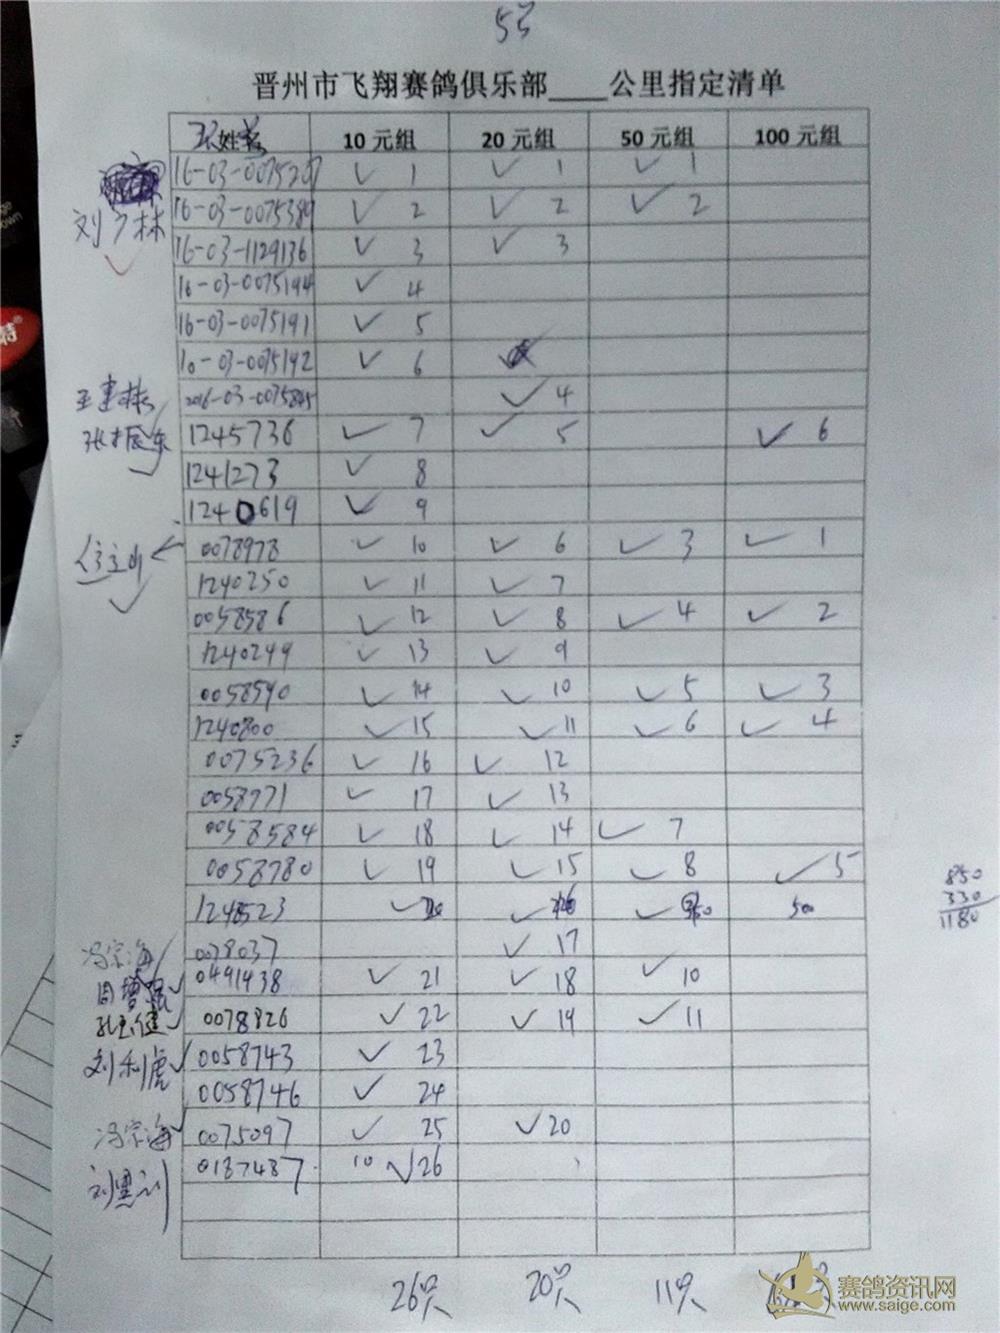 晋州市飞翔赛鸽俱乐部____公里指定清单
姓名 10 元组 20 元组 50 元组 100 元组
✓ 1 ✓ 1 ✓ 1
刘广林 16-03-0075389 ✓ 2 ✓ 2 ✓ 2
16-03-1129136 ✓ 3 ✓ 3
16-03-0075194 ✓ 4
16-03-0075191 ✓ 5
-03-0075192 ✓ 6
2016-03-0075845 ✓ 4
张振东 1245736 ✓ 7 ✓ 5 ✓ 6
1241273 ✓ 8
1240619 ✓ 9
0078978 ✓ 10 ✓ 6 ✓ 3 ✓ 1
1240250 ✓ 11 ✓ 7
0058586 ✓ 12 ✓ 8 ✓ 4 ✓ 2
1240249 ✓ 13 ✓ 9
0058590 ✓ 14 ✓ 10 ✓ 5 ✓ 3
1240800 ✓ 15 ✓ 11 ✓ 6 ✓ 4
0075236 ✓ 16 ✓ 12
0058971 ✓ 17 ✓ 13
0058584 ✓ 18 ✓ 14 ✓ 7
0058780 ✓ 19 ✓ 15 ✓ 8 ✓ 5
850
330
1180
✓ ✓ ✓ 500
冯宗海 0078037 ✓ 17
0491438 ✓ 21 ✓ 18 ✓ 10
0078826 ✓ 22 ✓ 19 ✓ 11
刘利虎 0058743 ✓ 23
0058746 ✓ 24
冯宗海 0075097 ✓ 25 ✓ 20
0187487 10 ✓ 26
26只 20只 11只
赛鸽资讯网
www.saige.com